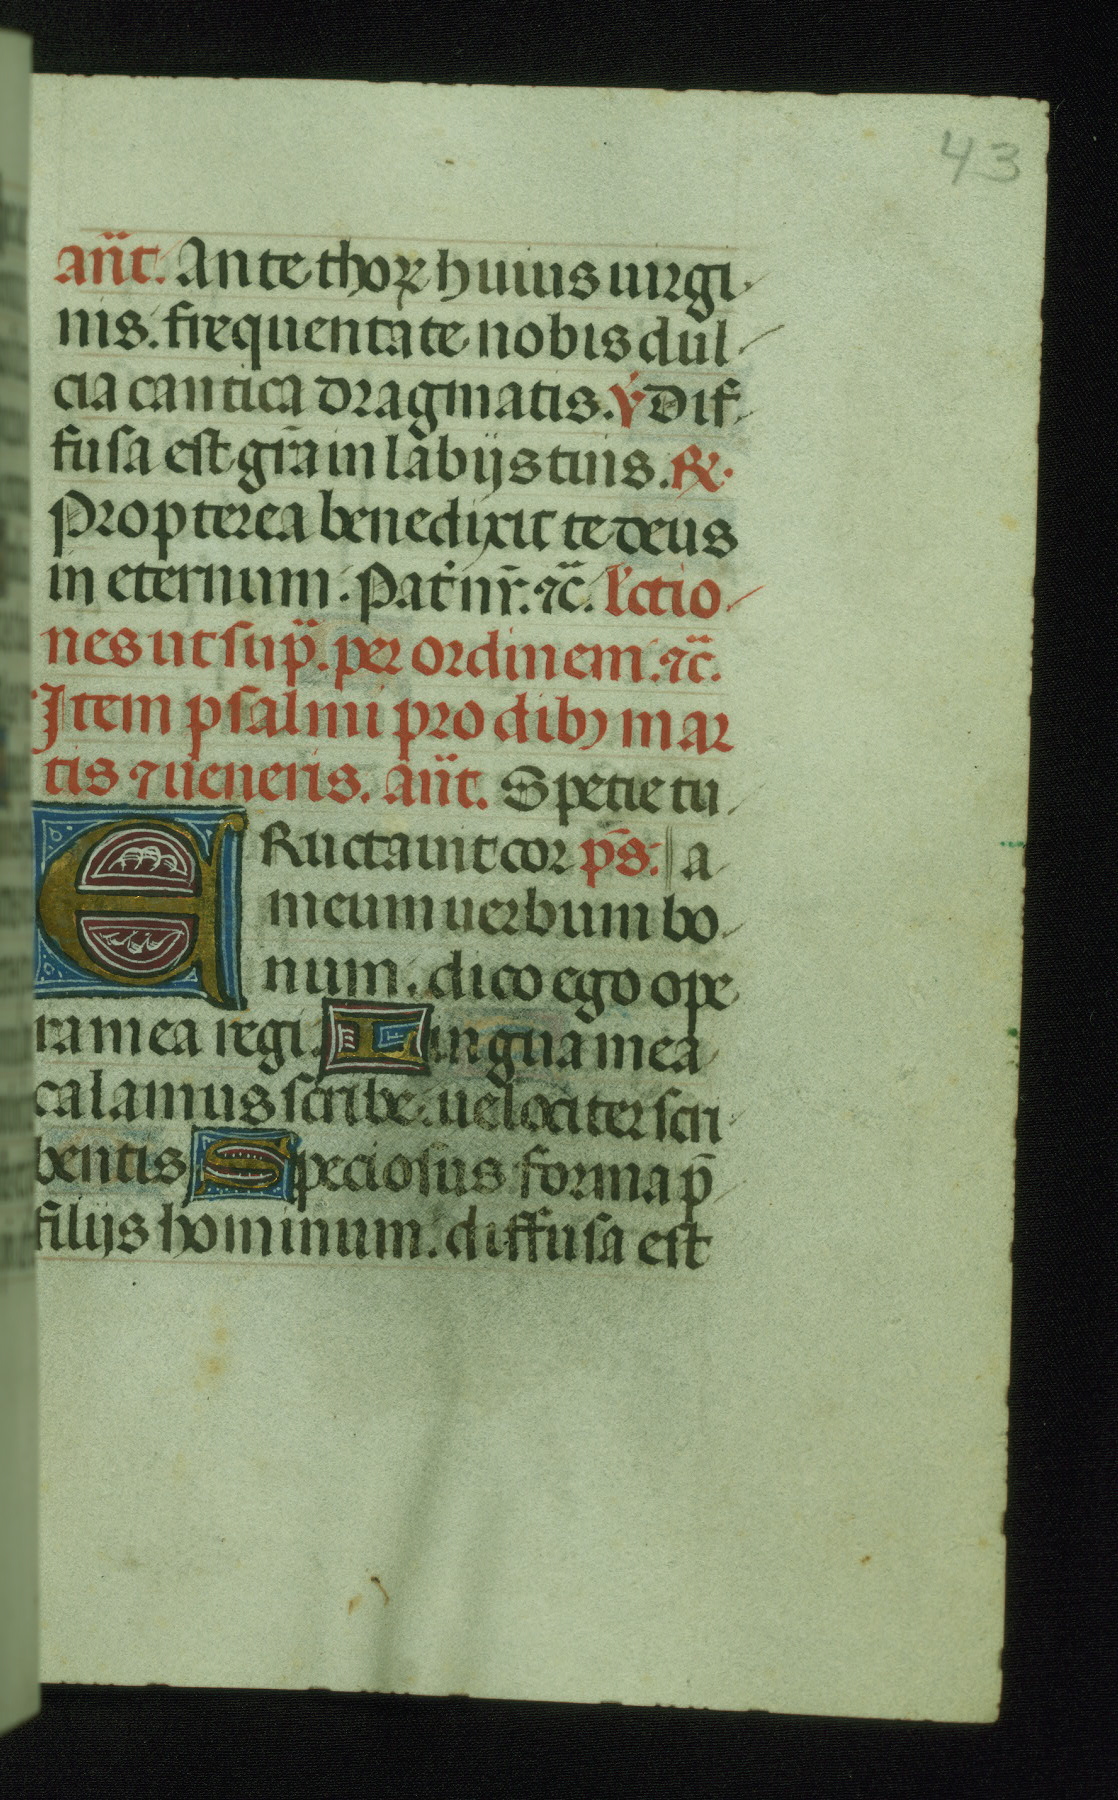 43
an̈t. Ante thoꝝ huius uirgi
nis. frequentate nobis dul
cia cantica dragmatis. v̇ Dif
fusa est gr̄a in labijs tuis. ℟.
Propterea benedixit te deus
in eternum. Pat̄ nr̄. ⁊c̈. l̄ctio
nes ut sup̈. per ordinem. ⁊c̈.
Item psalmi pro dibꝫ mar
tis ⁊ ueneris. an̈t. Spetie tu
ERuctauit cor ps̄. a
meum uerbum bo
num. dico ego ope
ra mea regi. Lingua mea
calamus scribe. uelociter scri
bentis Speciosus forma p̄
filijs hominum. diffusa est